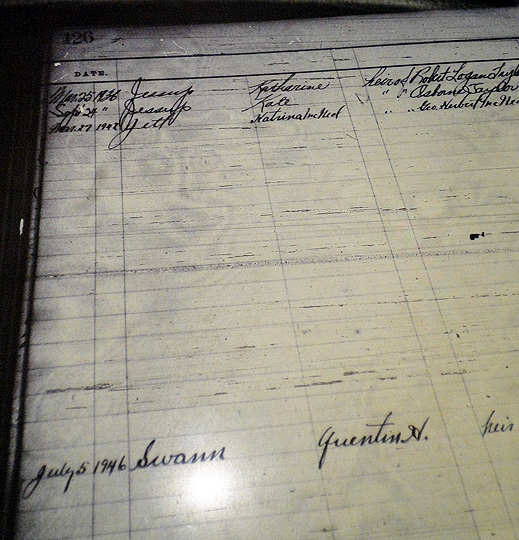 426
DATE.
Mar. 25 1936 Jessup Katharine heir of Robert Logan Tayl
Sept 24 " Jessup Kate " " Osborne Taylor
Mar. 27 1942 Katrina McNeel " " Geo. Herbert McNee
July 5 1946 Swann Quentin H. heir